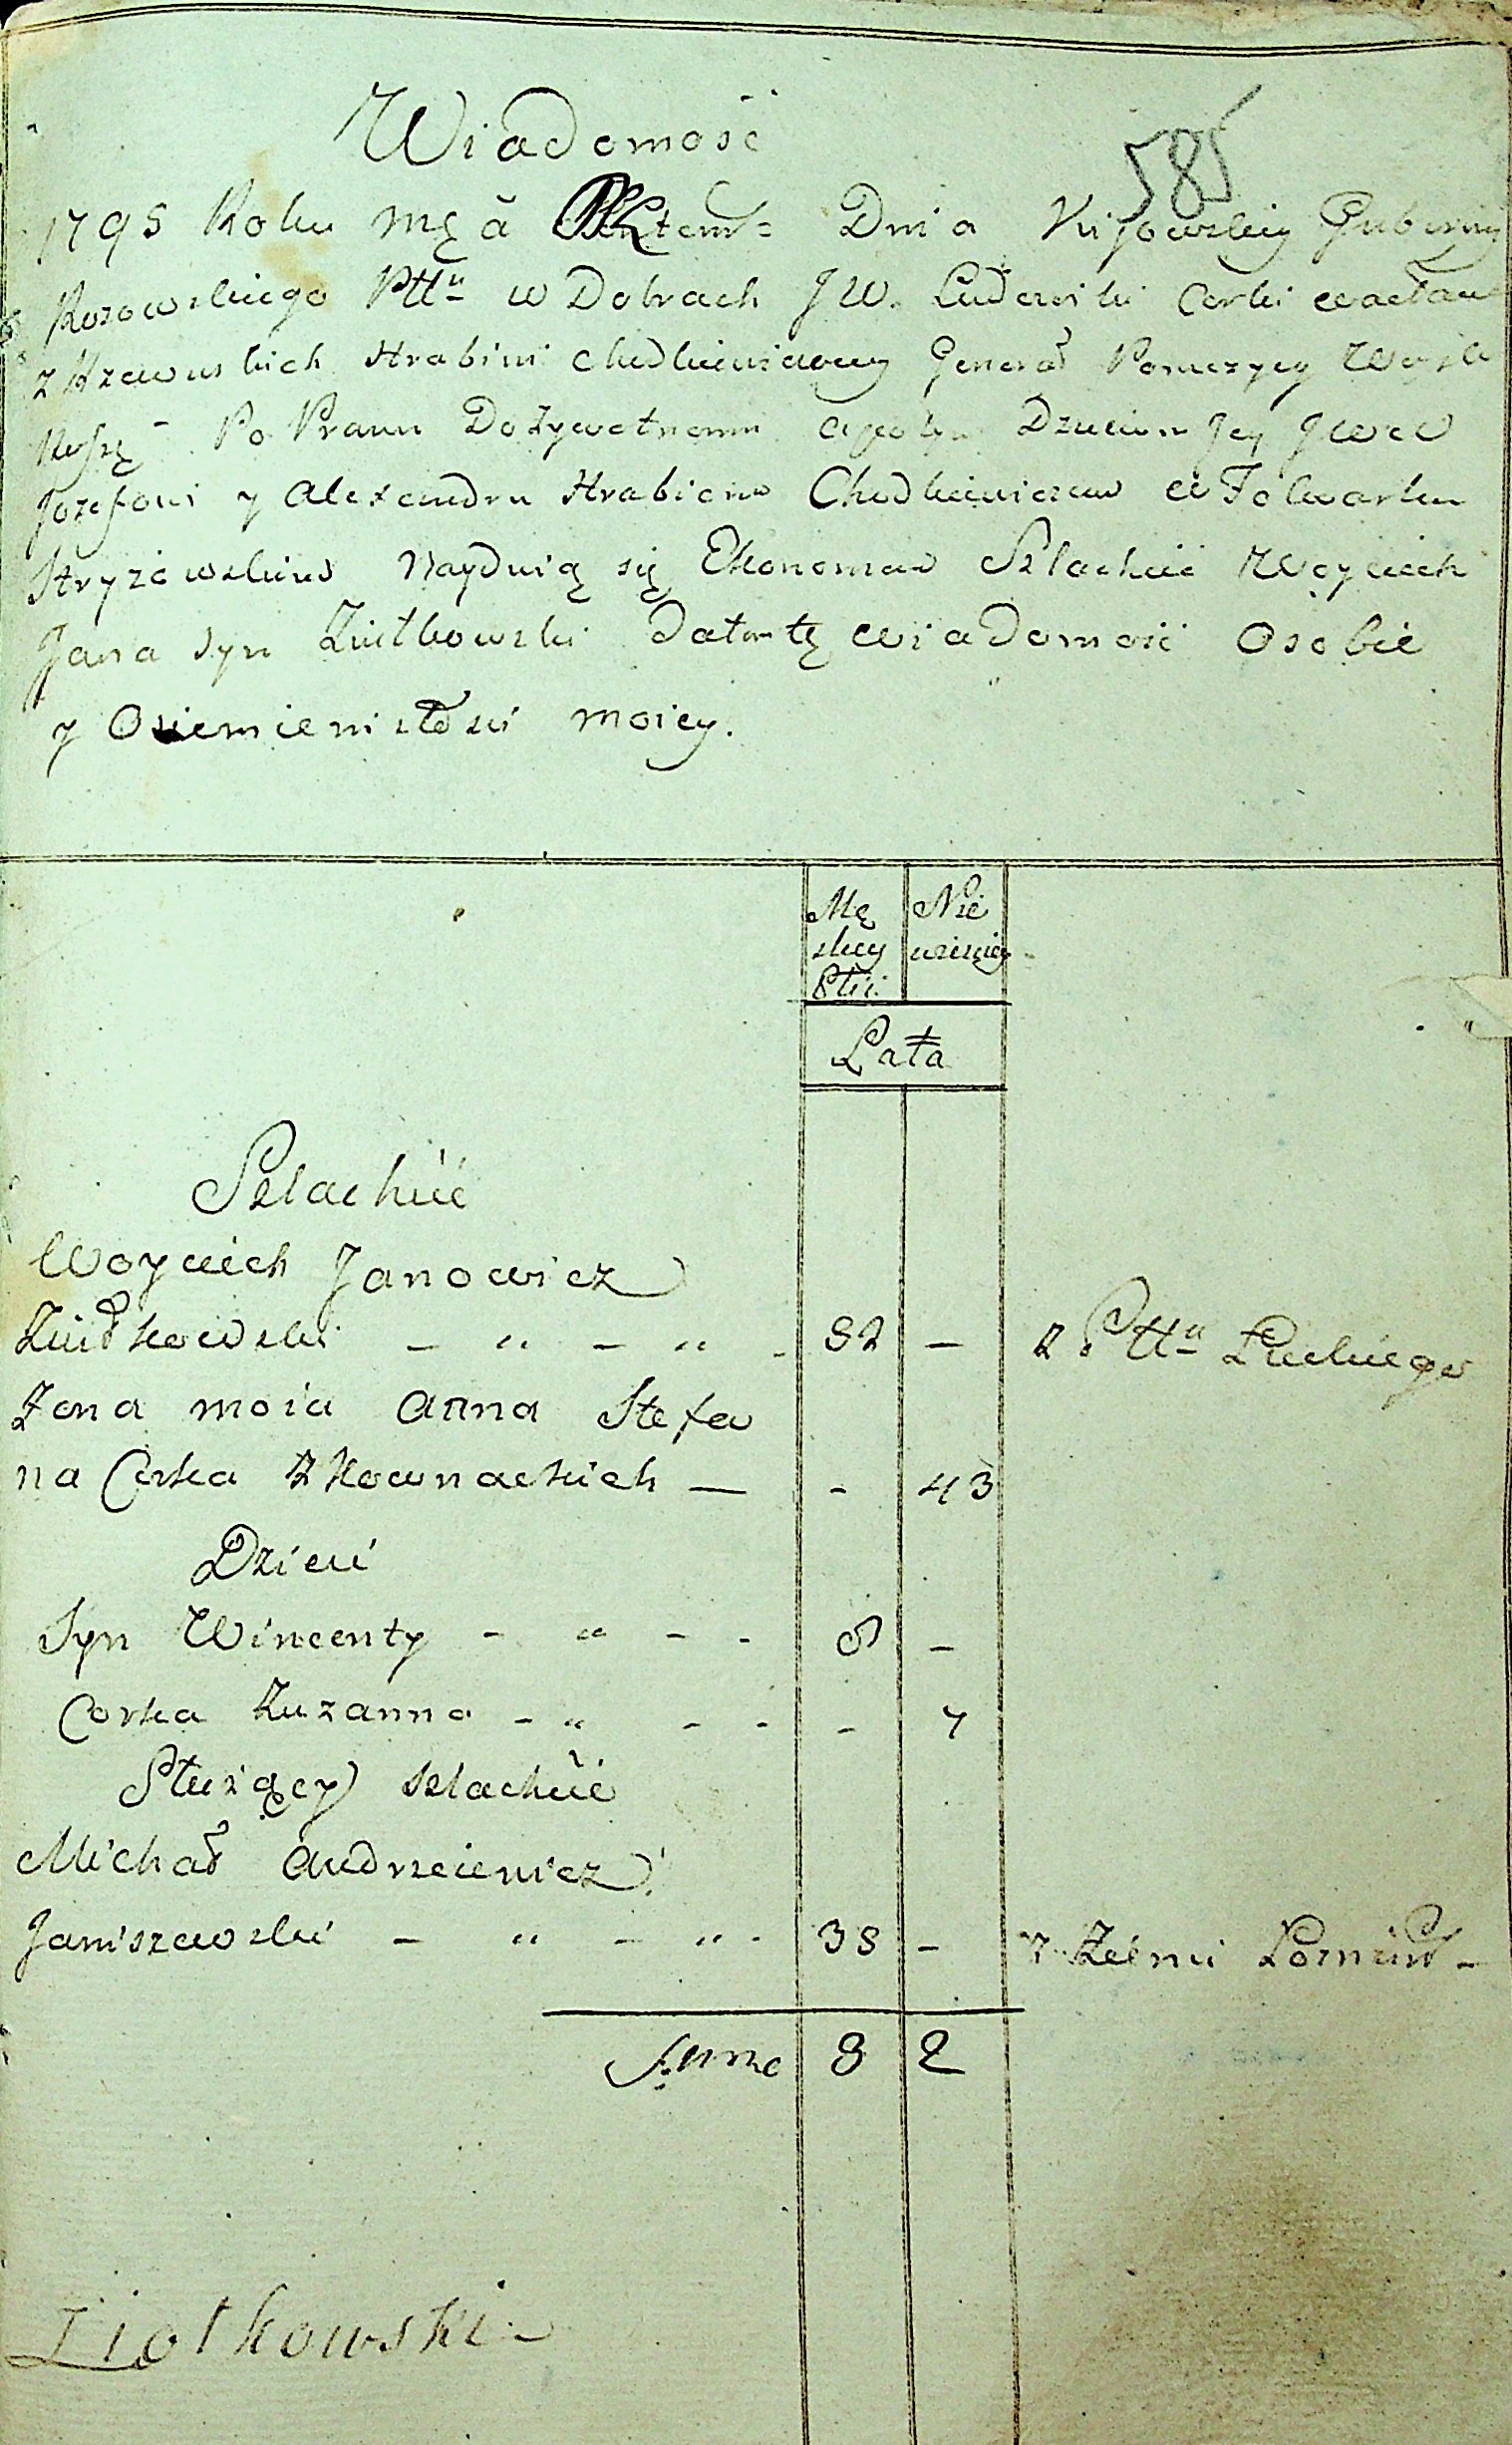 Wiadomość
585
1795 Roku Mca Dnia Kijowskiey Gubernij
Pttu w Dobrach J W. Ludwiki Corki Wacława
z Rzewuskich Hrabini Chodkiewiczowey Generał Woysk
Po Prawu Dożywotnemu Dzieciom Jey
Jozefowi y Alexandru Hrabiom Chodkiewiczom w Folwarku
Stryżowskim Nayduią się Ekonomem Szlachcic Woyciech
Jana syn Ziułkowski datem tę wiadomość O sobie
y O siemienistości moiey.
Mę Nie
skey wieściey
Płci
Lata
Szlachcic
Woyciech Janowicz
Ziułkowski - " - " - 52 - z Pttu Łuckiego
Zona moia Anna Stefa
na Corka z Kownackich - - 43
Dzieci
Syn Wincenty - " - - 9 -
Corka Zuzanna - " - - - 7
Służący Szlachcic
Michał Andrzeiewicz
Janiszewski - " - " - 38 - z Ziemi
Summa 3 2
Ziołkowski